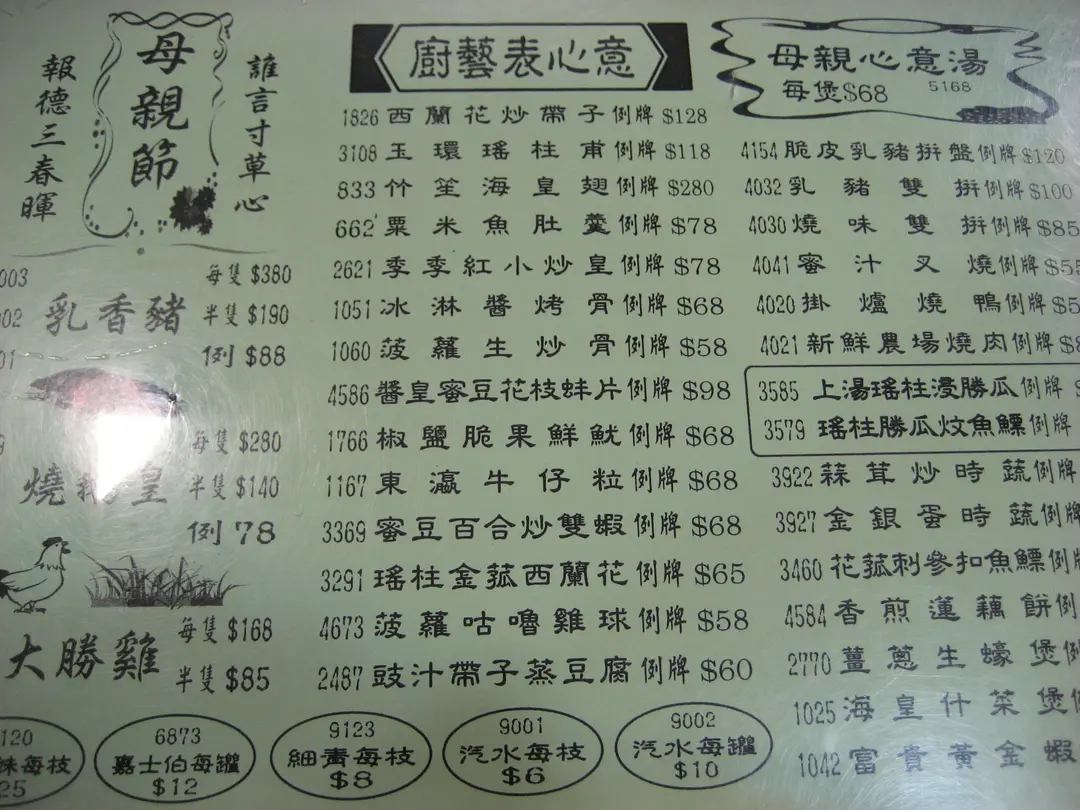 母親節
誰言寸草心
報德三春暉
003 每隻 $380
002 乳香豬 半隻 $190
01 例 $88
9 每隻 $280
燒 皇 半隻 $140
例 78
大勝雞 每隻 $168
半隻 $85
廚藝表心意
1826 西蘭花炒帶子 例牌 $128
3108 玉環瑤柱甫 例牌 $118
833 竹笙海皇翅 例牌 $280
662 粟米魚肚羹 例牌 $78
2621 季季紅小炒皇 例牌 $78
1051 冰淋醬烤骨 例牌 $68
1060 菠蘿生炒骨 例牌 $58
4586 醬皇蜜豆花枝蚌片 例牌 $98
1766 椒鹽脆果鮮魷 例牌 $68
1167 東瀛牛仔粒 例牌 $68
3369 蜜豆百合炒雙蝦 例牌 $68
3291 瑤柱金菰西蘭花 例牌 $65
4673 菠蘿咕嚕雞球 例牌 $58
2487 豉汁帶子蒸豆腐 例牌 $60
母親心意湯
每煲$68 5168
4154 脆皮乳豬拼盤 例牌 $120
4032 乳豬雙拼 例牌 $100
4030 燒味雙拼 例牌 $85
4041 蜜汁叉燒 例牌 $55
4020 掛爐燒鴨 例牌 $5
4021 新鮮農場燒肉 例牌 $
3585 上湯瑤柱浸勝瓜 例牌 $
3579 瑤柱勝瓜炆魚鰾 例牌
3922 蒜茸炒時蔬 例牌
3927 金銀蛋時蔬 例牌
3460 花菰刺參扣魚鰾 例牌
4584 香煎蓮藕餅 例
2770 薑蔥生蠔煲 例
1025 海皇什菜煲
1042 富貴黃金蝦
120 每枝 25
6873 嘉士伯每罐 $12
9123 細青每枝 $8
9001 汽水每枝 $6
9002 汽水每罐 $10